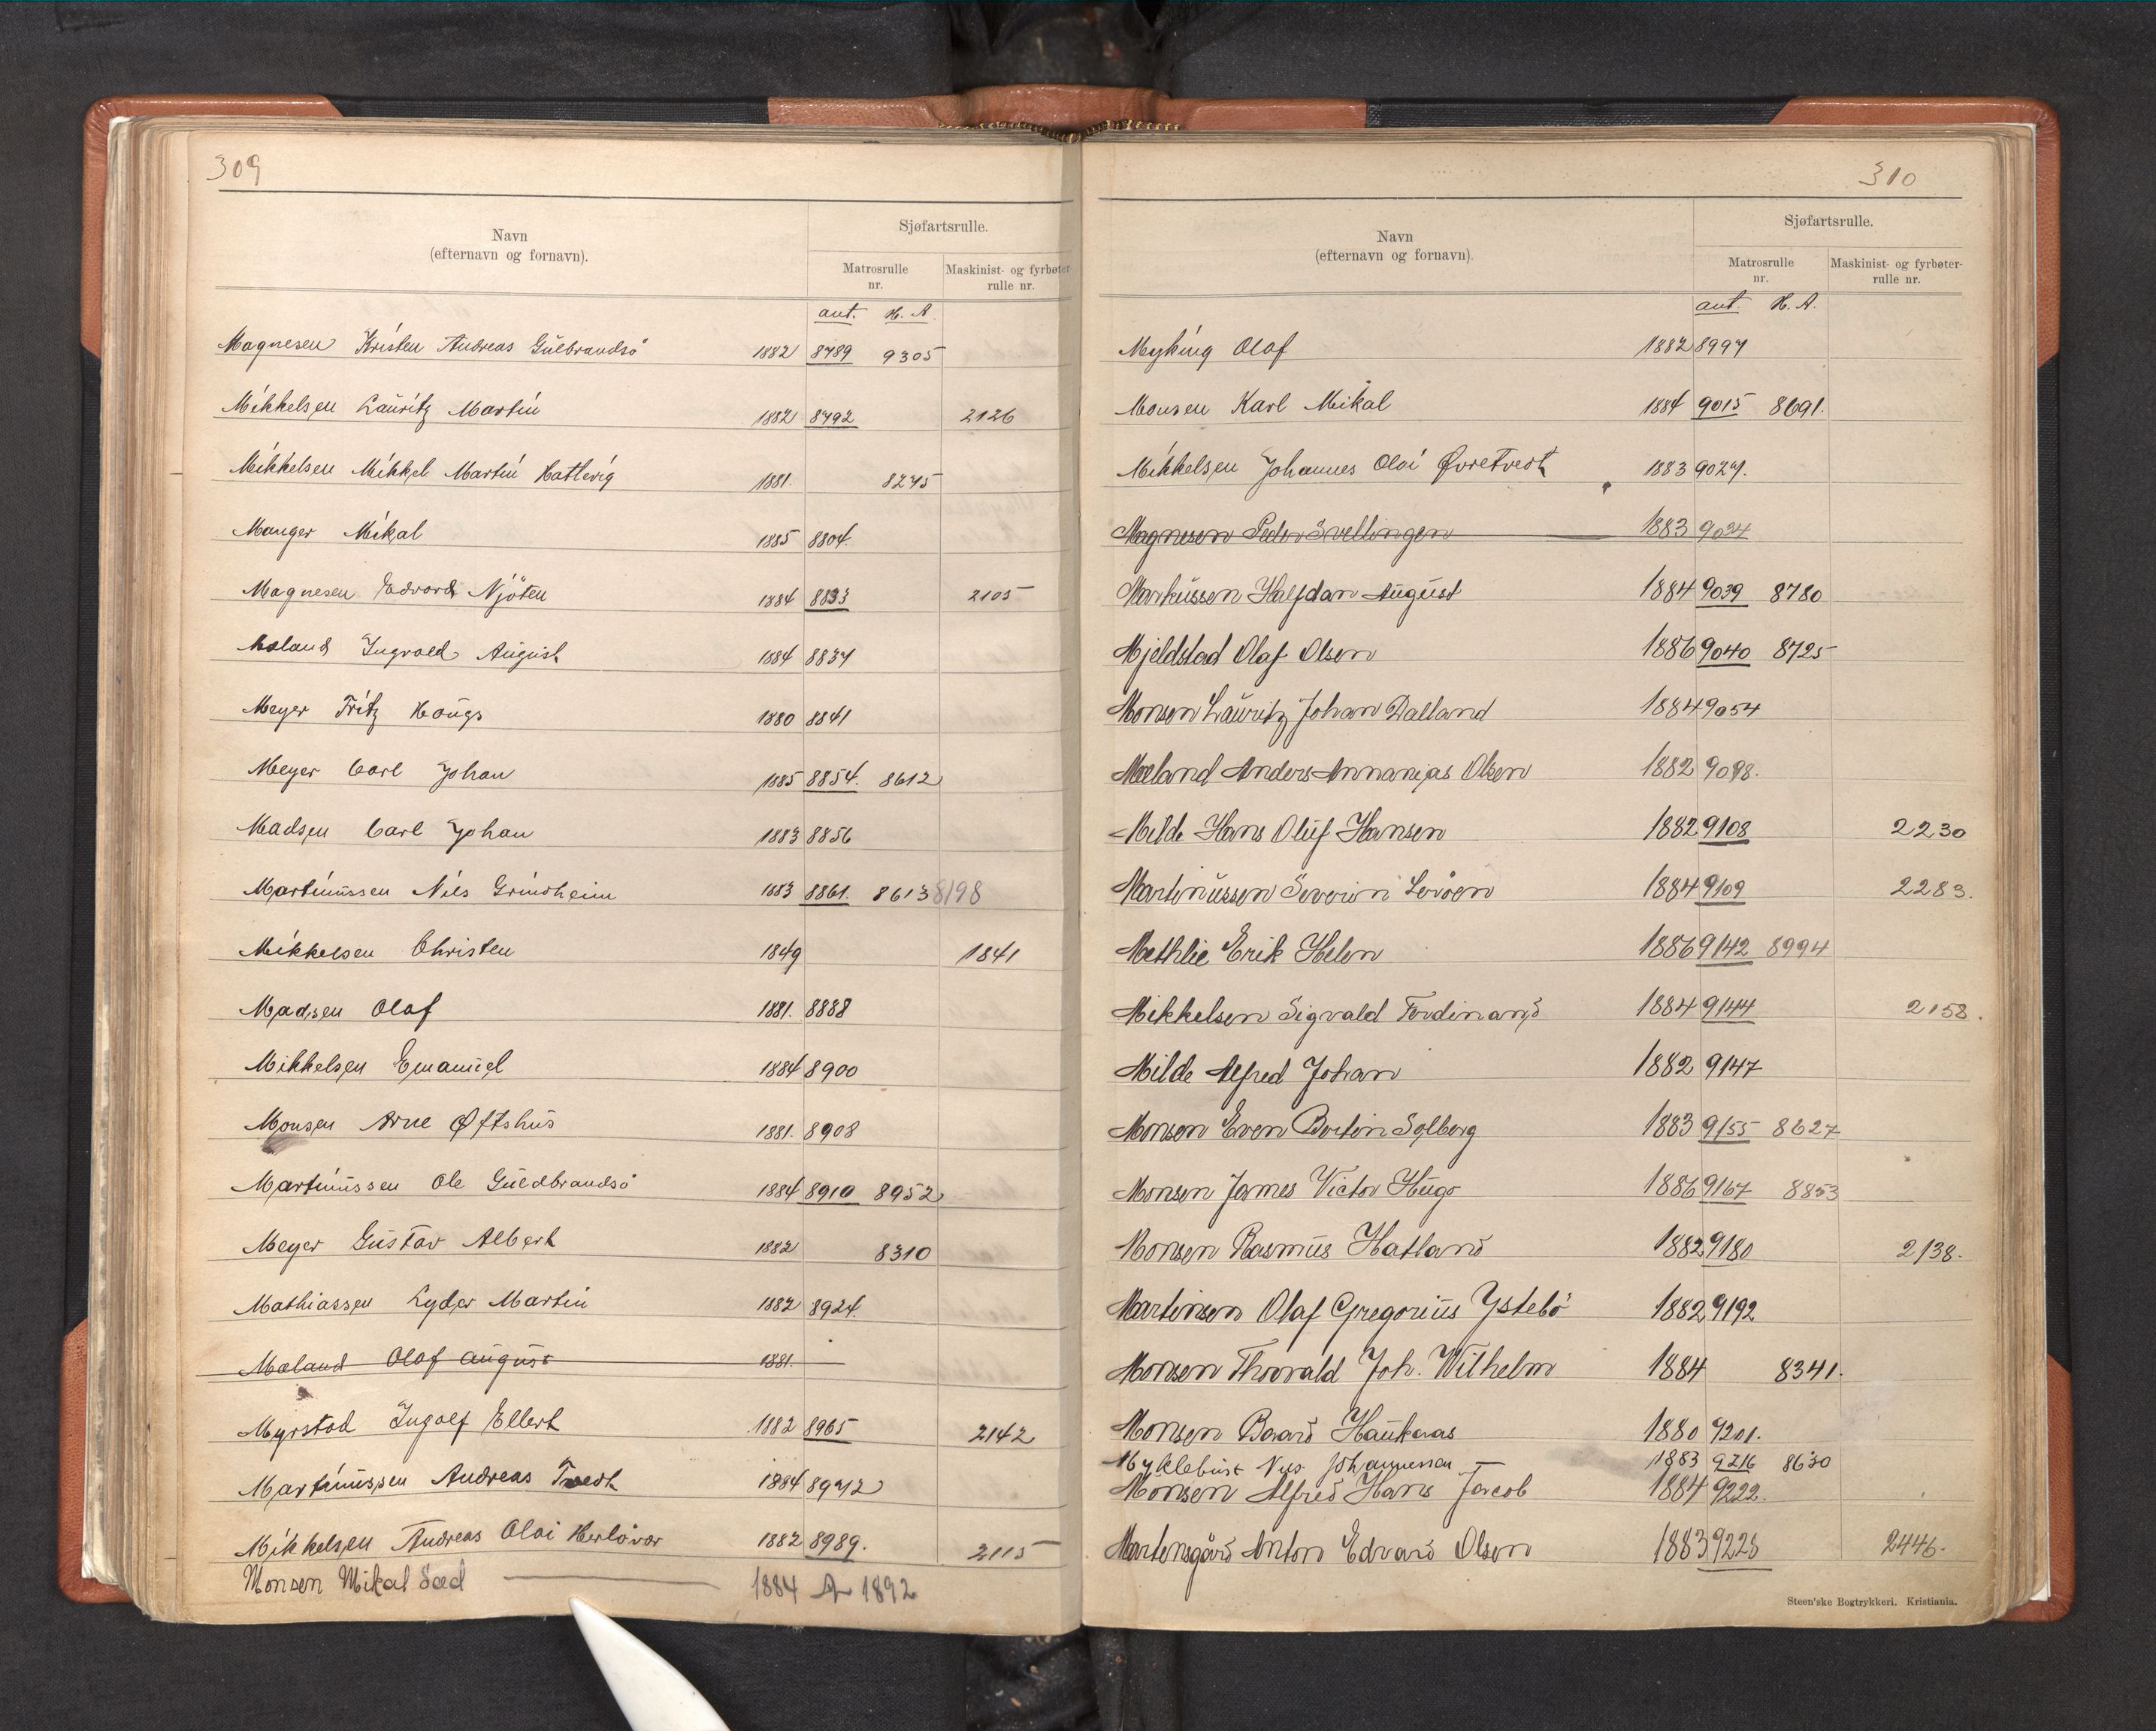 309
Navn
(efternavn og fornavn).
Sjøfartsrulle.
Matrosrulle nr.
Maskinist- og fyrbøter-rulle nr.
ant. H. A.
Magnesen Kristen Andreas Gulbrandsö 1882 8789 9305
Mikkelsen Lauritz Martin 1882 8792 2126
Mikkelsen Mikkel Martin Hatlevig 1881. 8275
Manger Mikal 1885 8804.
Magnesen Edvard Njöten 1884 8833 2105
Mæland Ingvald August 1884 8837
Meyer Fritz Haugs 1880 8841
Meyer Carl Johan 1885 8854. 8612
Madsen Carl Johan 1883 8856
Martinussen Nils Grindheim 1883 8861. 8613 8198
Mikkelsen Christen 1849 1841
Madsen Olaf 1881. 8888
Mikkelsen Emanuel 1884 8900
Monsen Arne Øftshus 1881. 8908
Martinussen Ole Guldbrandsö 1884 8910 8952
Meyer Gustav Albert 1882 8310
Mathiassen Lyder Martin 1882 8924.
Mæland Olaf August 1881.
Myrstad Ingolf Ellert 1882 8965 2142
Martinussen Andreas Tvedt 1884 8972
Mikkelsen Andreas Olai Herlövær 1882 8989. 2115
Monsen Mikal Sæd 1884 A 1892
310
Navn
(efternavn og fornavn).
Sjøfartsrulle.
Matrosrulle nr.
Maskinist- og fyrbøter-rulle nr.
ant. H. A.
Myking Olaf 1882 8997
Monsen Karl Mikal 1884 9015 8691.
Mikkelsen Johannes Olai Øvretvedt 1883 9027.
Magnesen Peder Svellingen 1883 9034
Markussen Halfdan August 1884 9039 8780
Mjeldstad Olaf Olsen 1886 9040 8725
Monsen Lauritz Johan Dalland 1884 9054
Mæland Anders Annanias Olsen 1882 9098.
Milde Hans Oluf Hansen 1882 9108 2230
Martinussen Severin Lovöen 1884 9109 2283.
Methlie Erik Helen 1886 9142 8994
Mikkelsen Sigvald Ferdinand 1884 9144 2158.
Milde Alfred Johan 1882 9147
Monsen Even Bertin Solberg 1883 9155 8627
Monsen James Victor Hugo 1886 9167 8853
Monsen Rasmus Hatland 1882 9180 2138.
Martinsen Olaf Gregorius Ystebö 1882 9192
Monsen Thorvald Joh. Wilhelm 1884 8341.
Monsen Baard Haukaas 1880 9201.
Myklebust Nils Johannessen 1883 9216 8630
Monsen Alfred Hans Jacob 1884 9222.
Martensgård Anton Edvard Olsen 1883 9225 2446.
Steen'ske Bogtrykkeri. Kristiania.